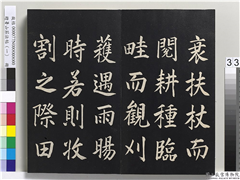 衰扶杖而
閱耕種臨
畦而觀刈
穫遇雨暘
時若則收
割之際田
33